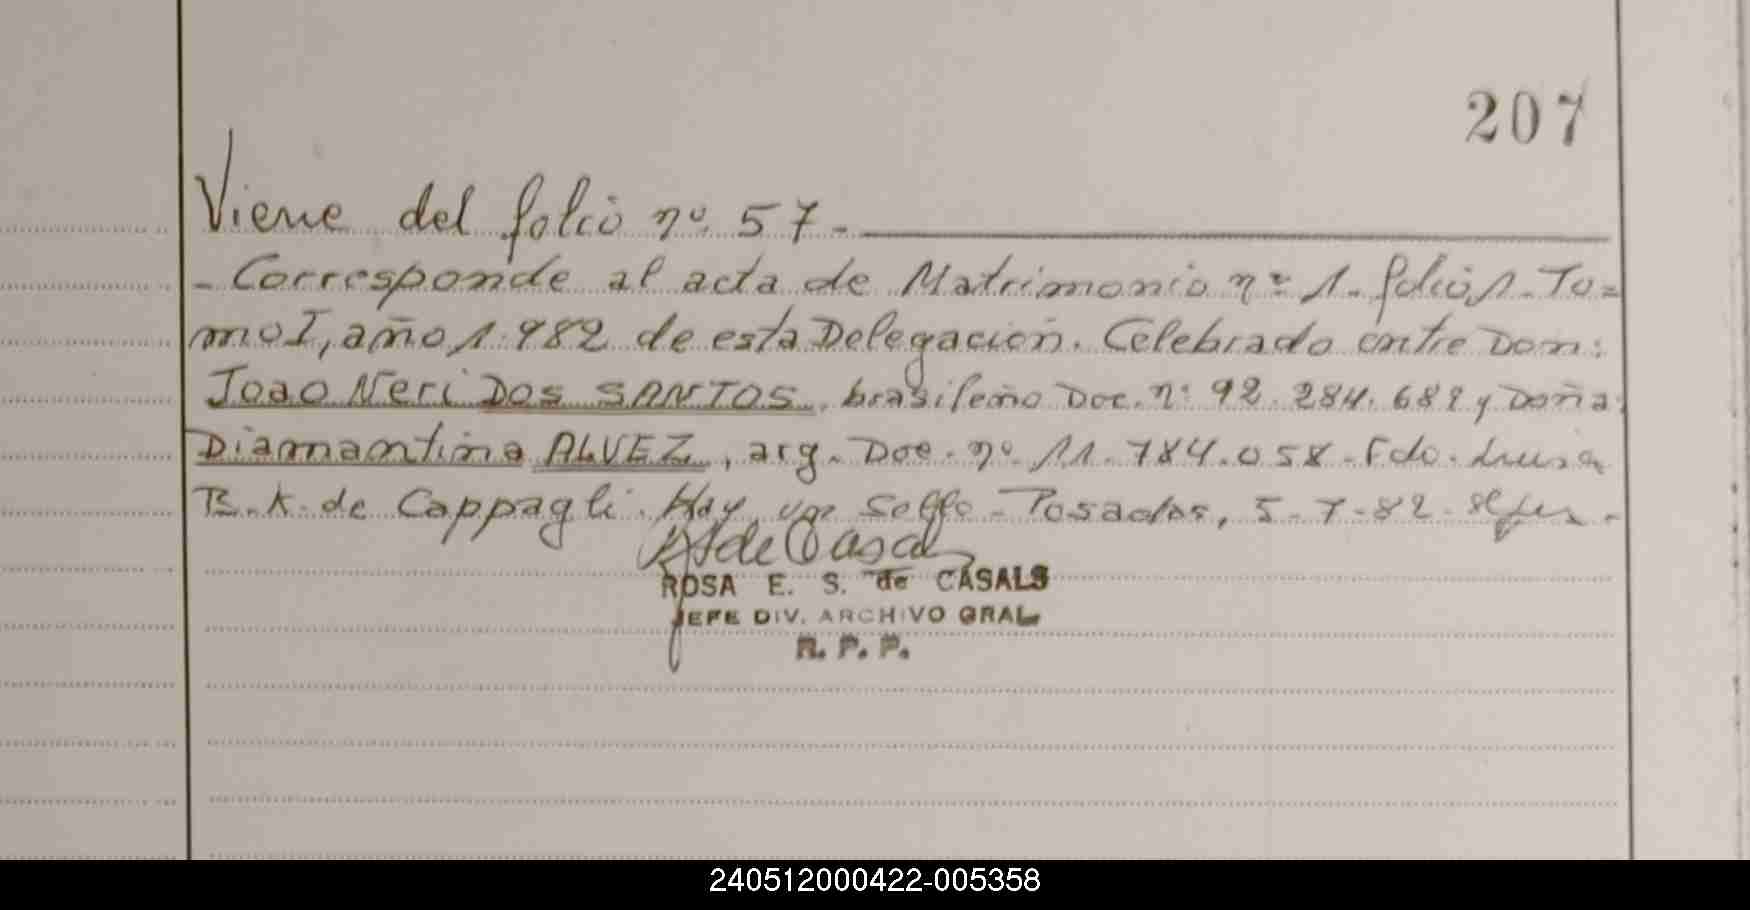 207
Viene del folio nº 57.-
- Corresponde al acta de Matrimonio nº 1. folio 1- To=
mo I, año 1.982 de esta Delegación. Celebrado entre Don:
Joao Neri DOS SANTOS, brasileño Doc. nº 92.284.689 y Doña:
Diamantina ALVEZ, arg. Doc. nº 11.784.058- Fdo. Luisa
B. K. de Cappagli. Hay un sello- Posadas, 5-7-82.
ROSA E. S. de CASALS
JEFE DIV. ARCHIVO GRAL
R. P. P.
240512000422-005358